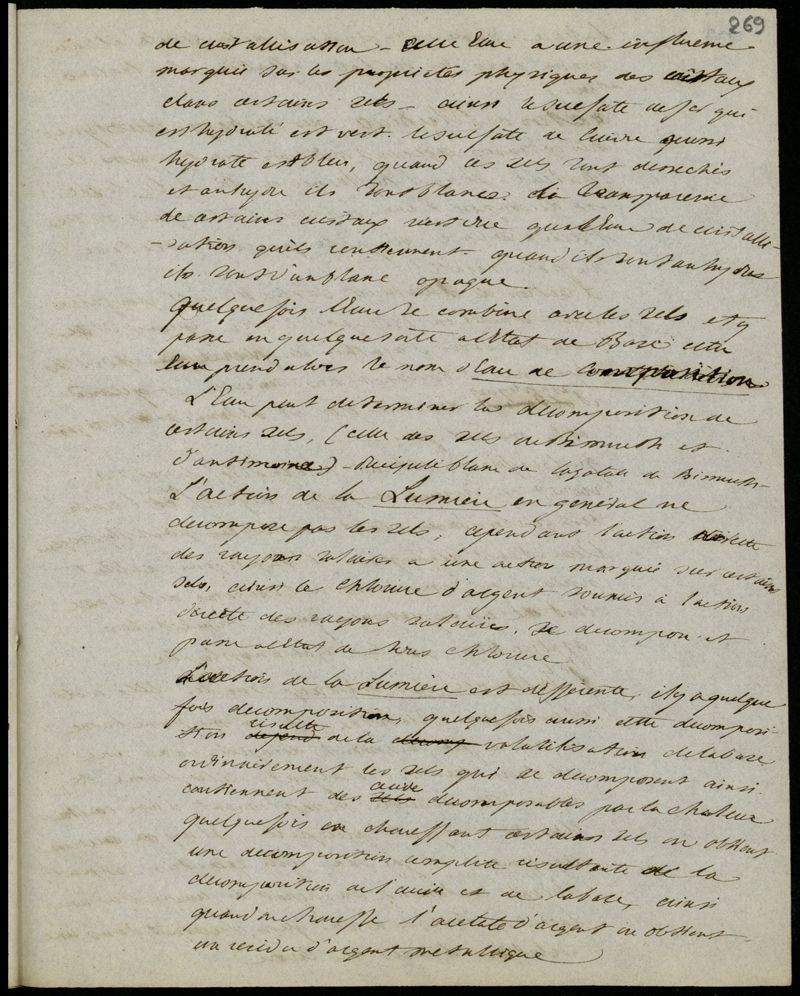 269
de cristallisation – cette Eau a une influence
marquée sur les propriétés physiques des cristaux
dans certains sels – ainsi le sulfate de fer qui
est hydraté est vert. le sulfate de cuivre aussi
hydraté est bleu, quand ces sels sont desechés
et anhydre ils sont blancs. la transparence
de certains cristaux n'est due qu'a l'Eau de cristalli-
-sation qu'ils contiennent. quand ils sont anhydres
ils sont d'un blanc opaque.
Quelquefois l'Eau se combine avec les sels et y
passe en quelque sorte a l'Etat de Base cette
Eau prend alors le nom d'Eau de Composition
L'Eau peut determiner la decomposition de
certains sels, (celle des sels de Bismuth et
d'antimoine) – Précipité blanc de de Bismuth –
L'action de la Lumiere en général ne
decompose pas les sels, cependant l'action directe
des rayons solaires a une action marquée sur certains
sels, ainsi le chlorure d'argent soumis à l'action
directe des rayons solaires, se decompose et
passe a l'Etat de sous chlorure
L'action de la Lumiere est differente, il y a quelque
fois decomposition, quelquefois aussi cette decomposi-
résulte
tion depend de la volatilisation de la base
ordinairement les sels qui se decomposent ainsi
acide
contiennent des sels decomposables par la chaleur
quelquefois en chauffant certains sels on obtient
une decomposition complete résultante de la
decomposition de l'acide et de la base, ainsi
quand on chauffe l'acétate d'argent on obtient
un residu d'argent metallique